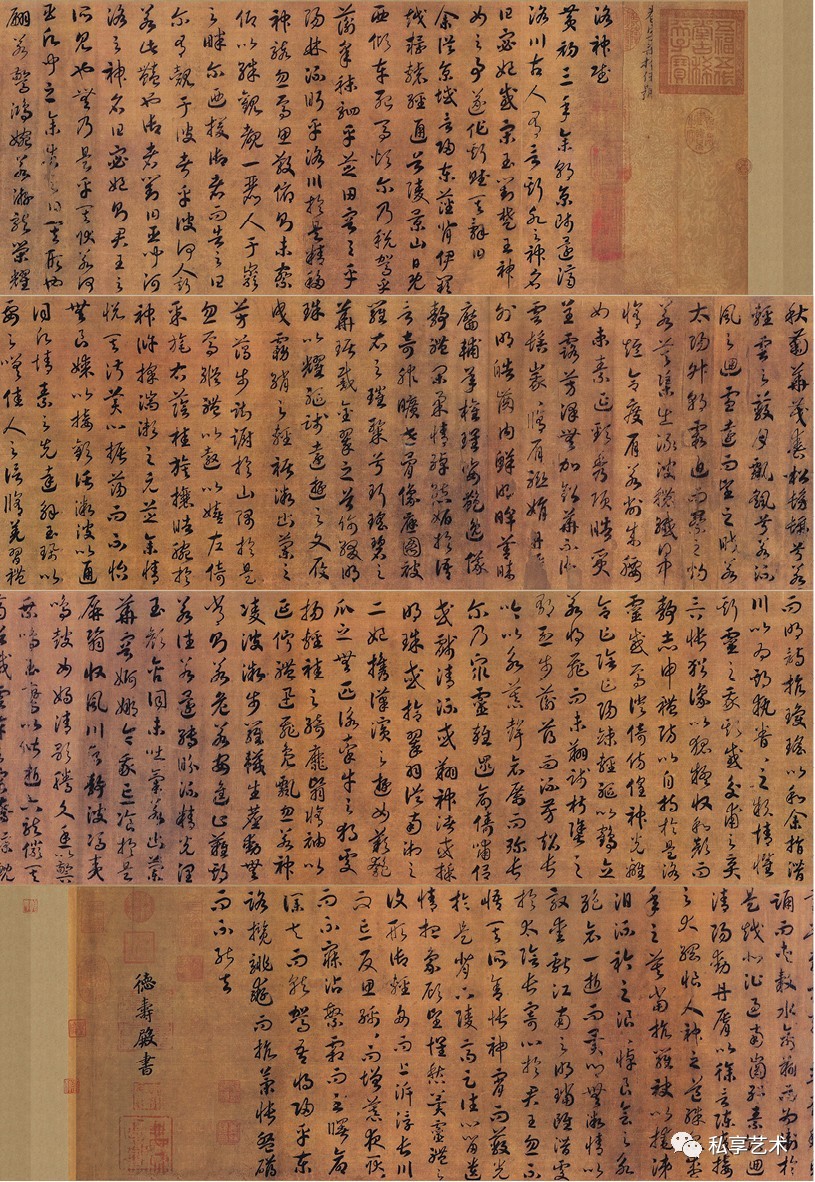 洛神賦
黄初三年余朝京師還濟
洛川古人有言斯水之神名
曰宓妃感宋玉對楚王神
女之事遂作斯賦其辭曰
余從京域言歸東藩背伊闕
越轘轅經通谷陵景山日既
西傾車殆馬煩爾乃稅駕乎
蘅皋秣駟乎芝田容與乎
陽林流眄乎洛川於是精移
神駭忽焉思散俯則未察
仰以殊觀覩一麗人于巖
之畔爾迺援御者而告之曰
爾有覿于彼者乎彼何人斯
若此豔也御者對曰臣聞河
洛之神名曰宓妃則君王之
所見也無乃是乎其狀若何
臣願聞之余告之曰其形也
翩若驚鴻婉若游龍榮耀
秋菊華茂春松髣髴兮若
輕雲之蔽月飄飖兮若流
風之迴雪遠而望之皎若
太陽升朝霞迫而察之灼
若芙蕖出淥波穠纖得中
脩短合度肩若削成腰
如束素延頸秀項皓質
呈露芳澤無加鉛華不御
雲髻峩峩脩眉聯娟丹脣
外朗皓齒内鮮明眸善睞
靨輔承權瓌姿豔逸儀
靜體閑柔情綽態媚於語
言奇服曠世骨像應圖被
羅衣之璀粲兮珥瑤碧之
華琚戴金翠之首飾綴明
珠以耀軀踐遠遊之文履
曳霧綃之輕裾微幽蘭之
芳藹步踟躕於山隅於是
忽焉縱體以遨以嬉左倚
采旄右蔭桂旗攘皓腕於
神滸採湍瀨之玄芝余情
悅其淑美心振蕩而不怡
無良媒以接歡託微波以通
詞願情素之先達解玉珮以
要之嗟佳人之信脩羌習禮
而明詩抗瓊瑤以和余指潛
川以為期執眷眷之款情懼
斯靈之我欺感交甫之棄
言悵猶豫以狐疑收和顏而
靜志申禮防以自持於是洛
靈感焉徙倚彷徨神光離
合乍陰乍陽竦輕軀以鶴立
若將飛而未翔踐椒塗之
郁烈步蘅薄而流芳超長
吟以永慕聲哀厲而彌長
爾乃衆靈雜遝命儔嘯侶
或戲清流或翔神渚或採
明珠或拾翠羽從南湘之
二妃攜漢濱之遊女歎匏
瓜之無匹詠牽牛之獨處
揚輕袿之綺靡翳脩袖以
延佇體迅飛鳧飄忽若神
凌波微步羅襪生塵動無
常則若危若安進止難期
若往若還轉眄流精光潤
玉顏含詞未吐氣若幽蘭
華容婀娜令我忘飡於是
屏翳收風川后靜波馮夷
鳴鼓女媧清歌騰文魚以警
乘鳴玉鸞以偕逝六龍儼其
齊首載雲車之容裔鯨鯢
踊而夾轂水禽翔而為衛於
是越北沚過南岡紆素領迴
清陽動丹脣以徐言陳交接
之大綱恨人神之道殊怨盛
年之莫當抗羅袂以掩涕
泪流襟之浪浪悼良會之永
絶哀一逝而異鄉無微情以
效愛獻江南之明璫雖潛處
於太陰長寄心於君王忽不
悟其所舍悵神霄而蔽光
於是背下陵高足往心留遺
情想像顧望懷愁冀靈體之
復形御輕舟而上泝浮長川
而忘反思綿綿而增慕夜耿耿
而不寐沾繁霜而至曙命
僕夫而就駕吾將歸乎東
路攬騑轡而抗策悵盤桓
而不能去
德壽殿書
私享艺术